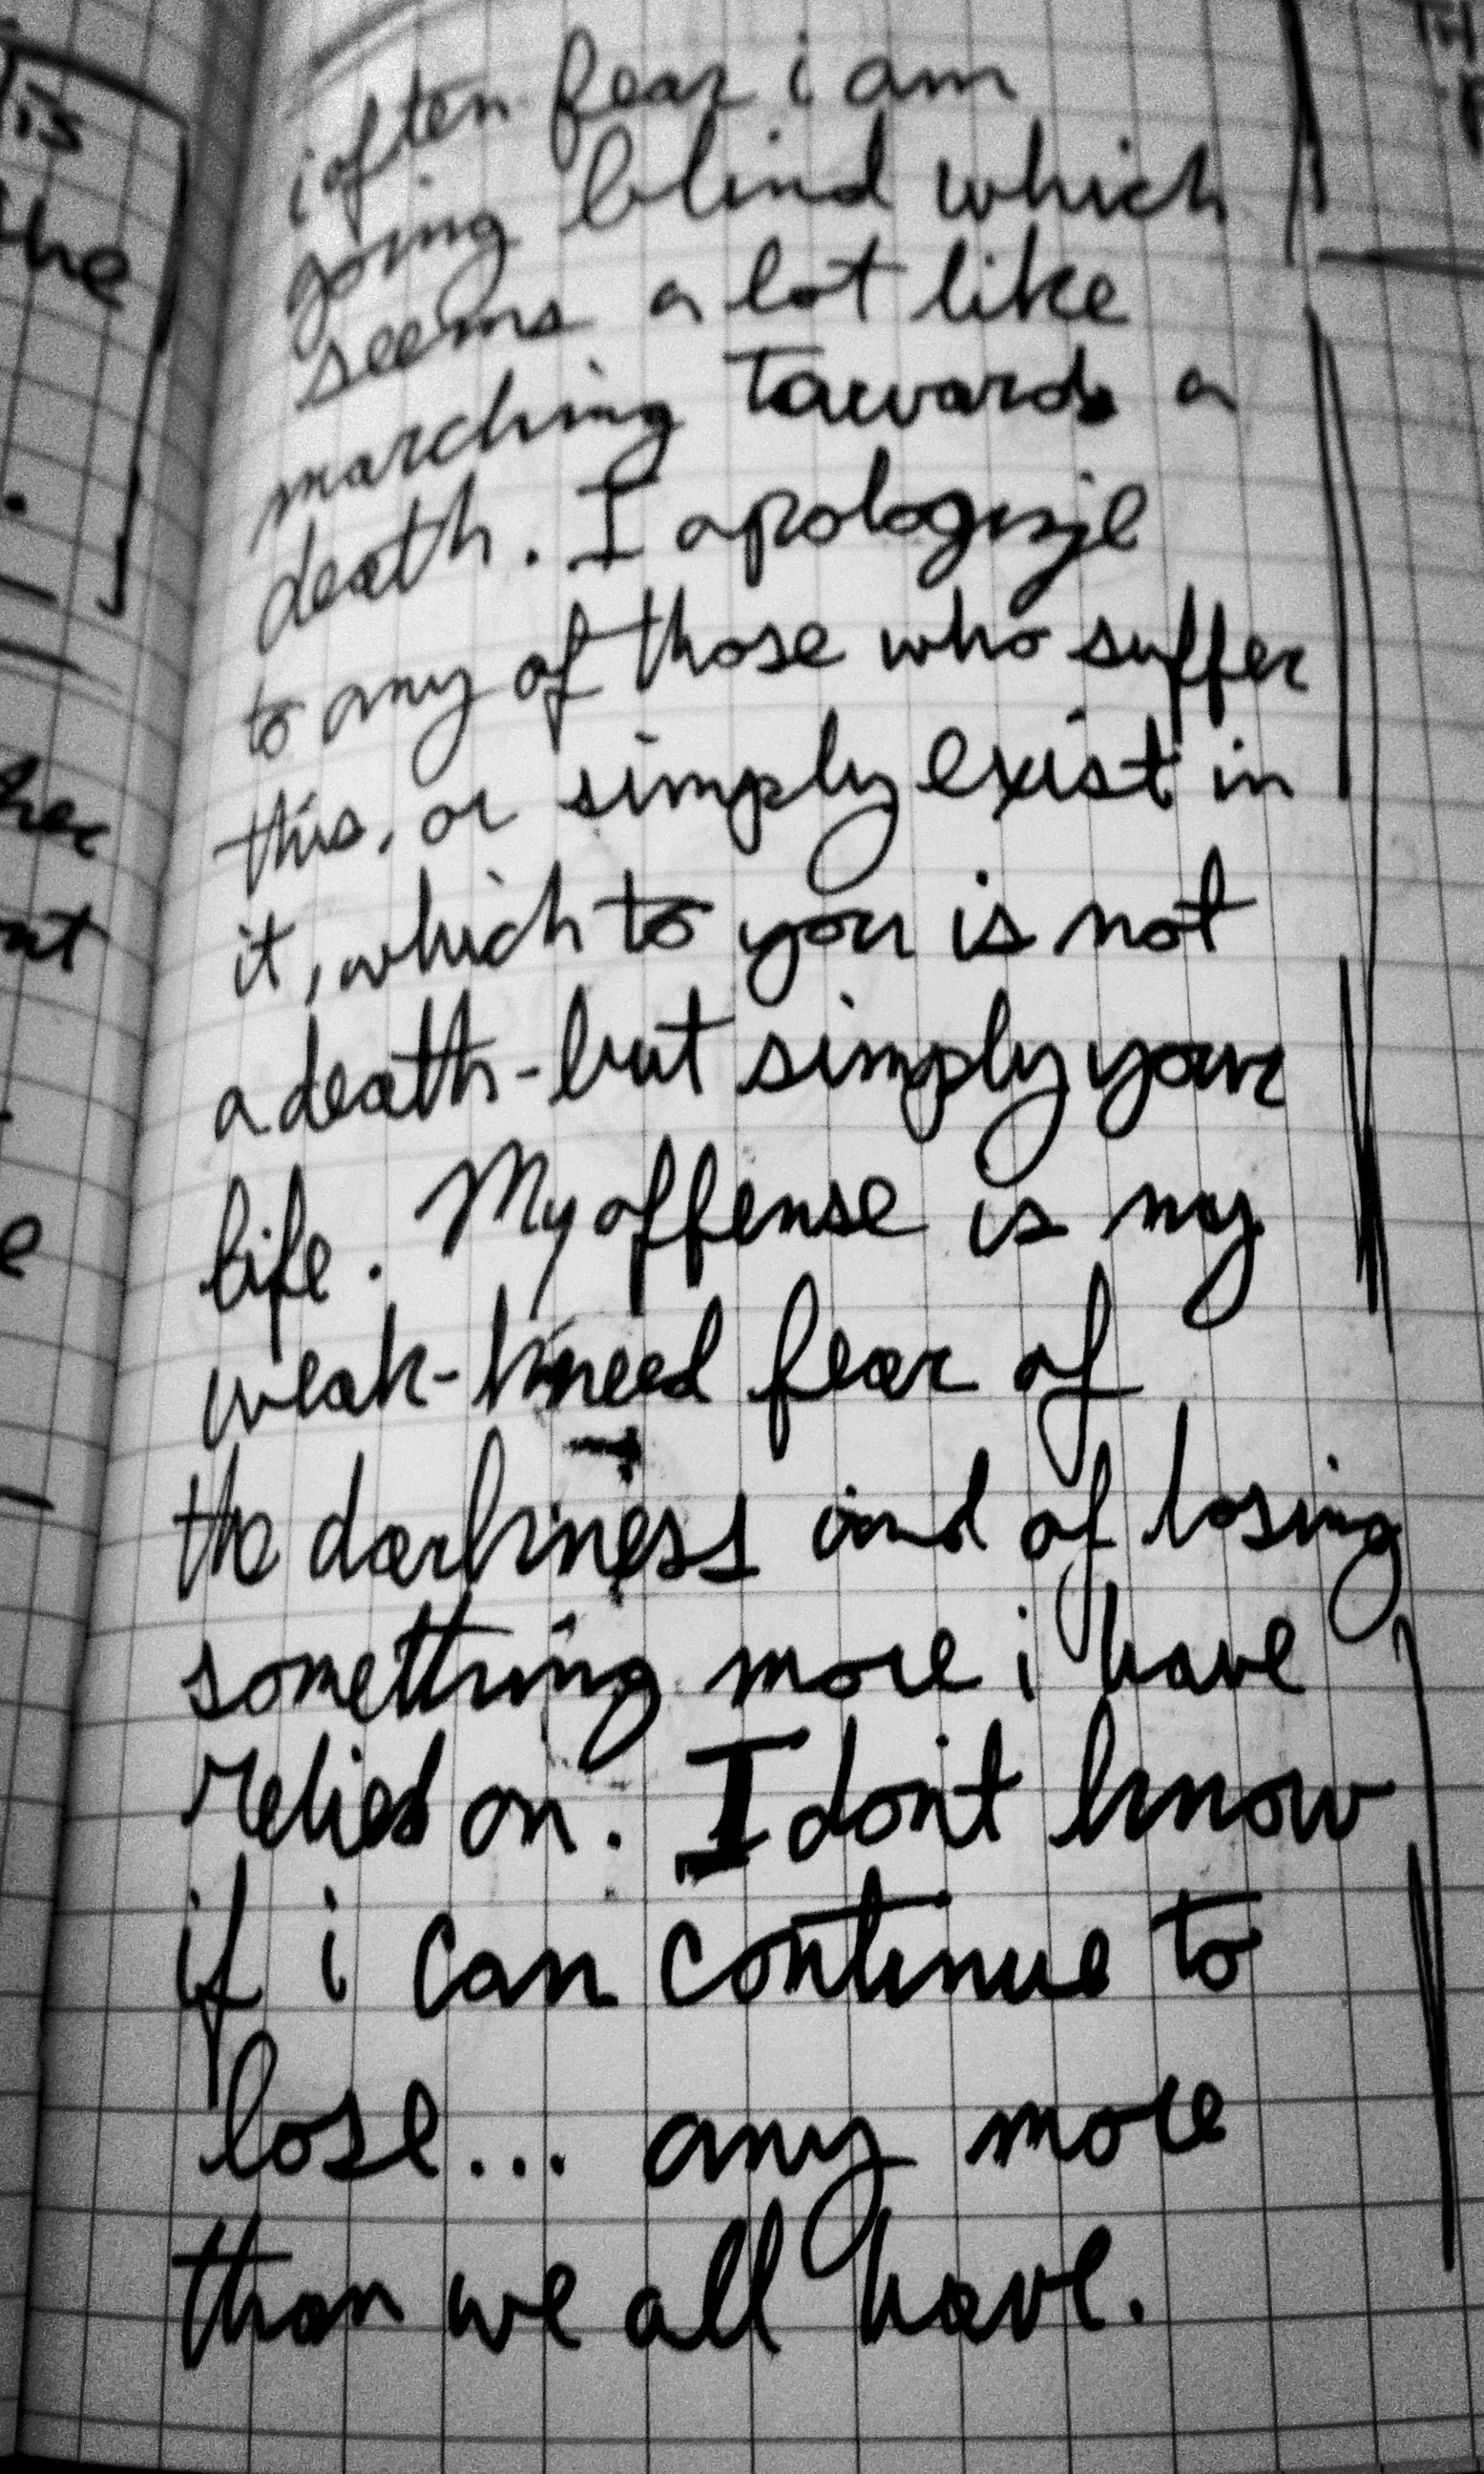 i often fear i am
going blind which
seems a lot like
marching towards a
death. I apologize
to any of those who suffer
this, or simply exist in
it, which to you is not
a death - but simply your
life. My offense is my
weak-kneed fear of
the darkness and of losing
something more i have
relied on. I don't know
if i can continue to
lose... any more
than we all have.
is
the